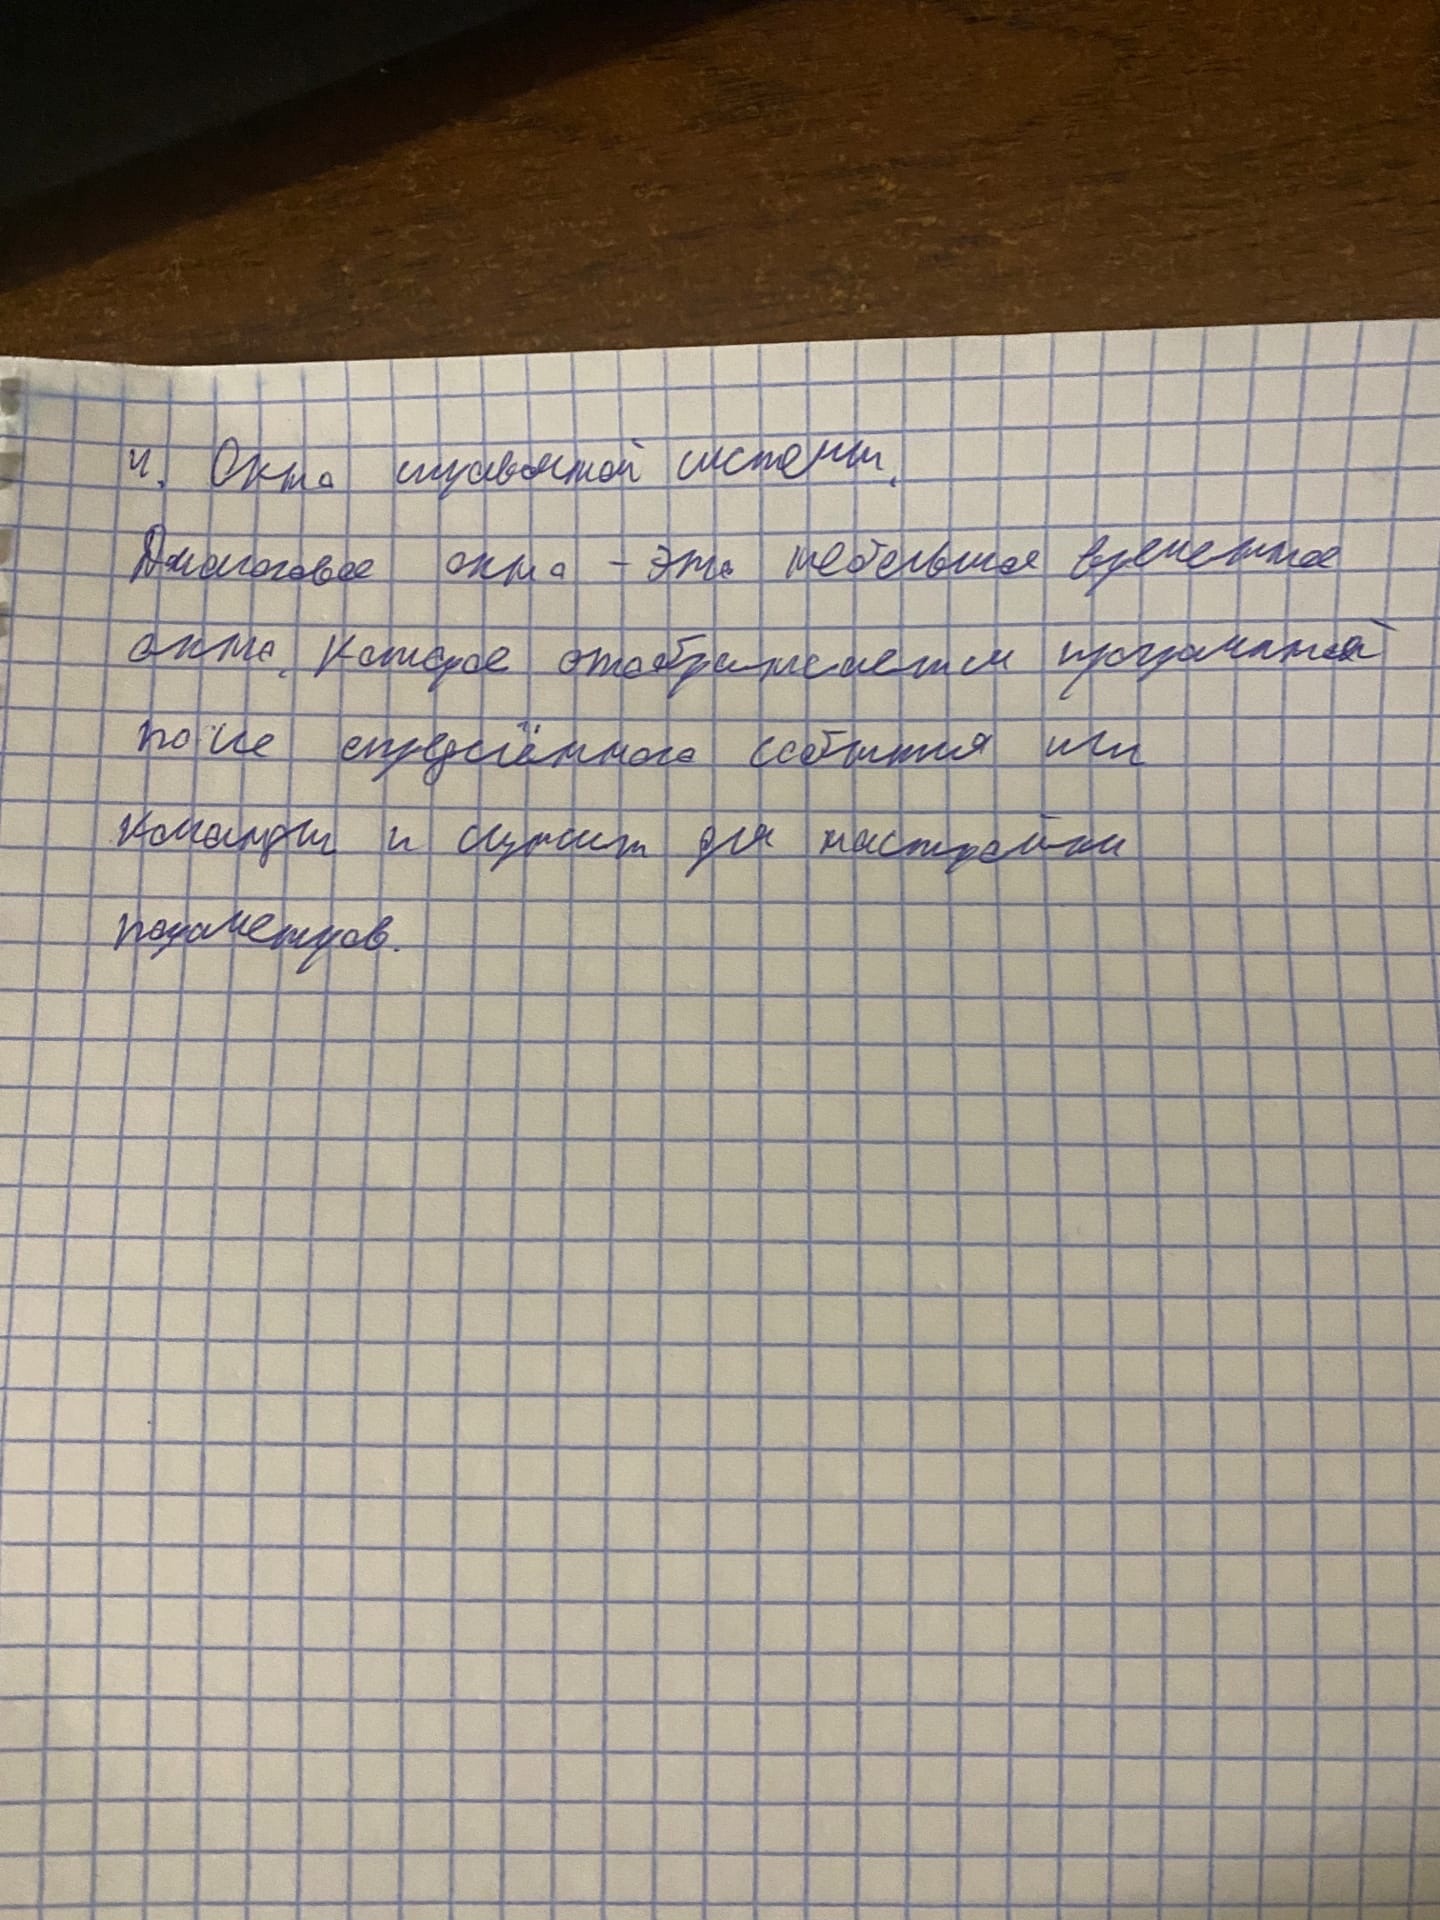 4. Окна справочной системы.
Диалоговое окно - это небольшое временное
окно, которое отображается программой
после определённого события или
команды и служит для настройки
параметров.